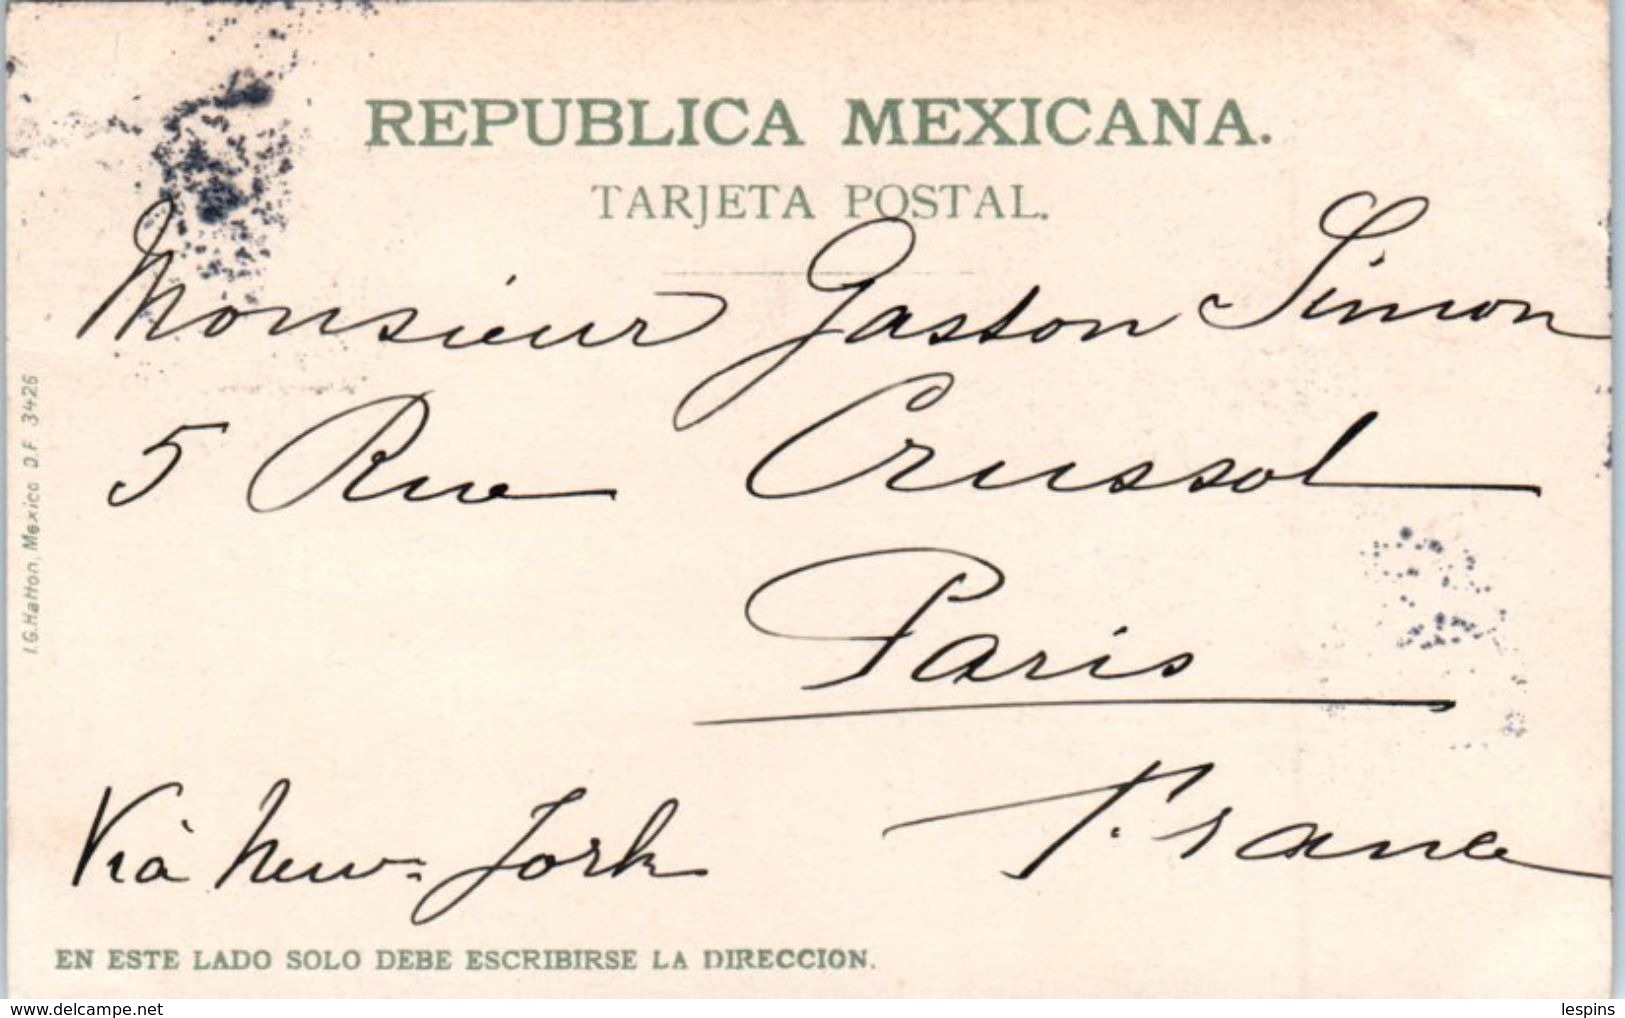 REPUBLICA MEXICANA.
TARJETA POSTAL.
Monsieur Gaston Simon
5 Rue Crussol
Paris
France
Via New-York
EN ESTE LADO SOLO DEBE ESCRIBIRSE LA DIRECCION.
I.G.Hatton, Mexico D.F. 3426
www.delcampe.net
lespins